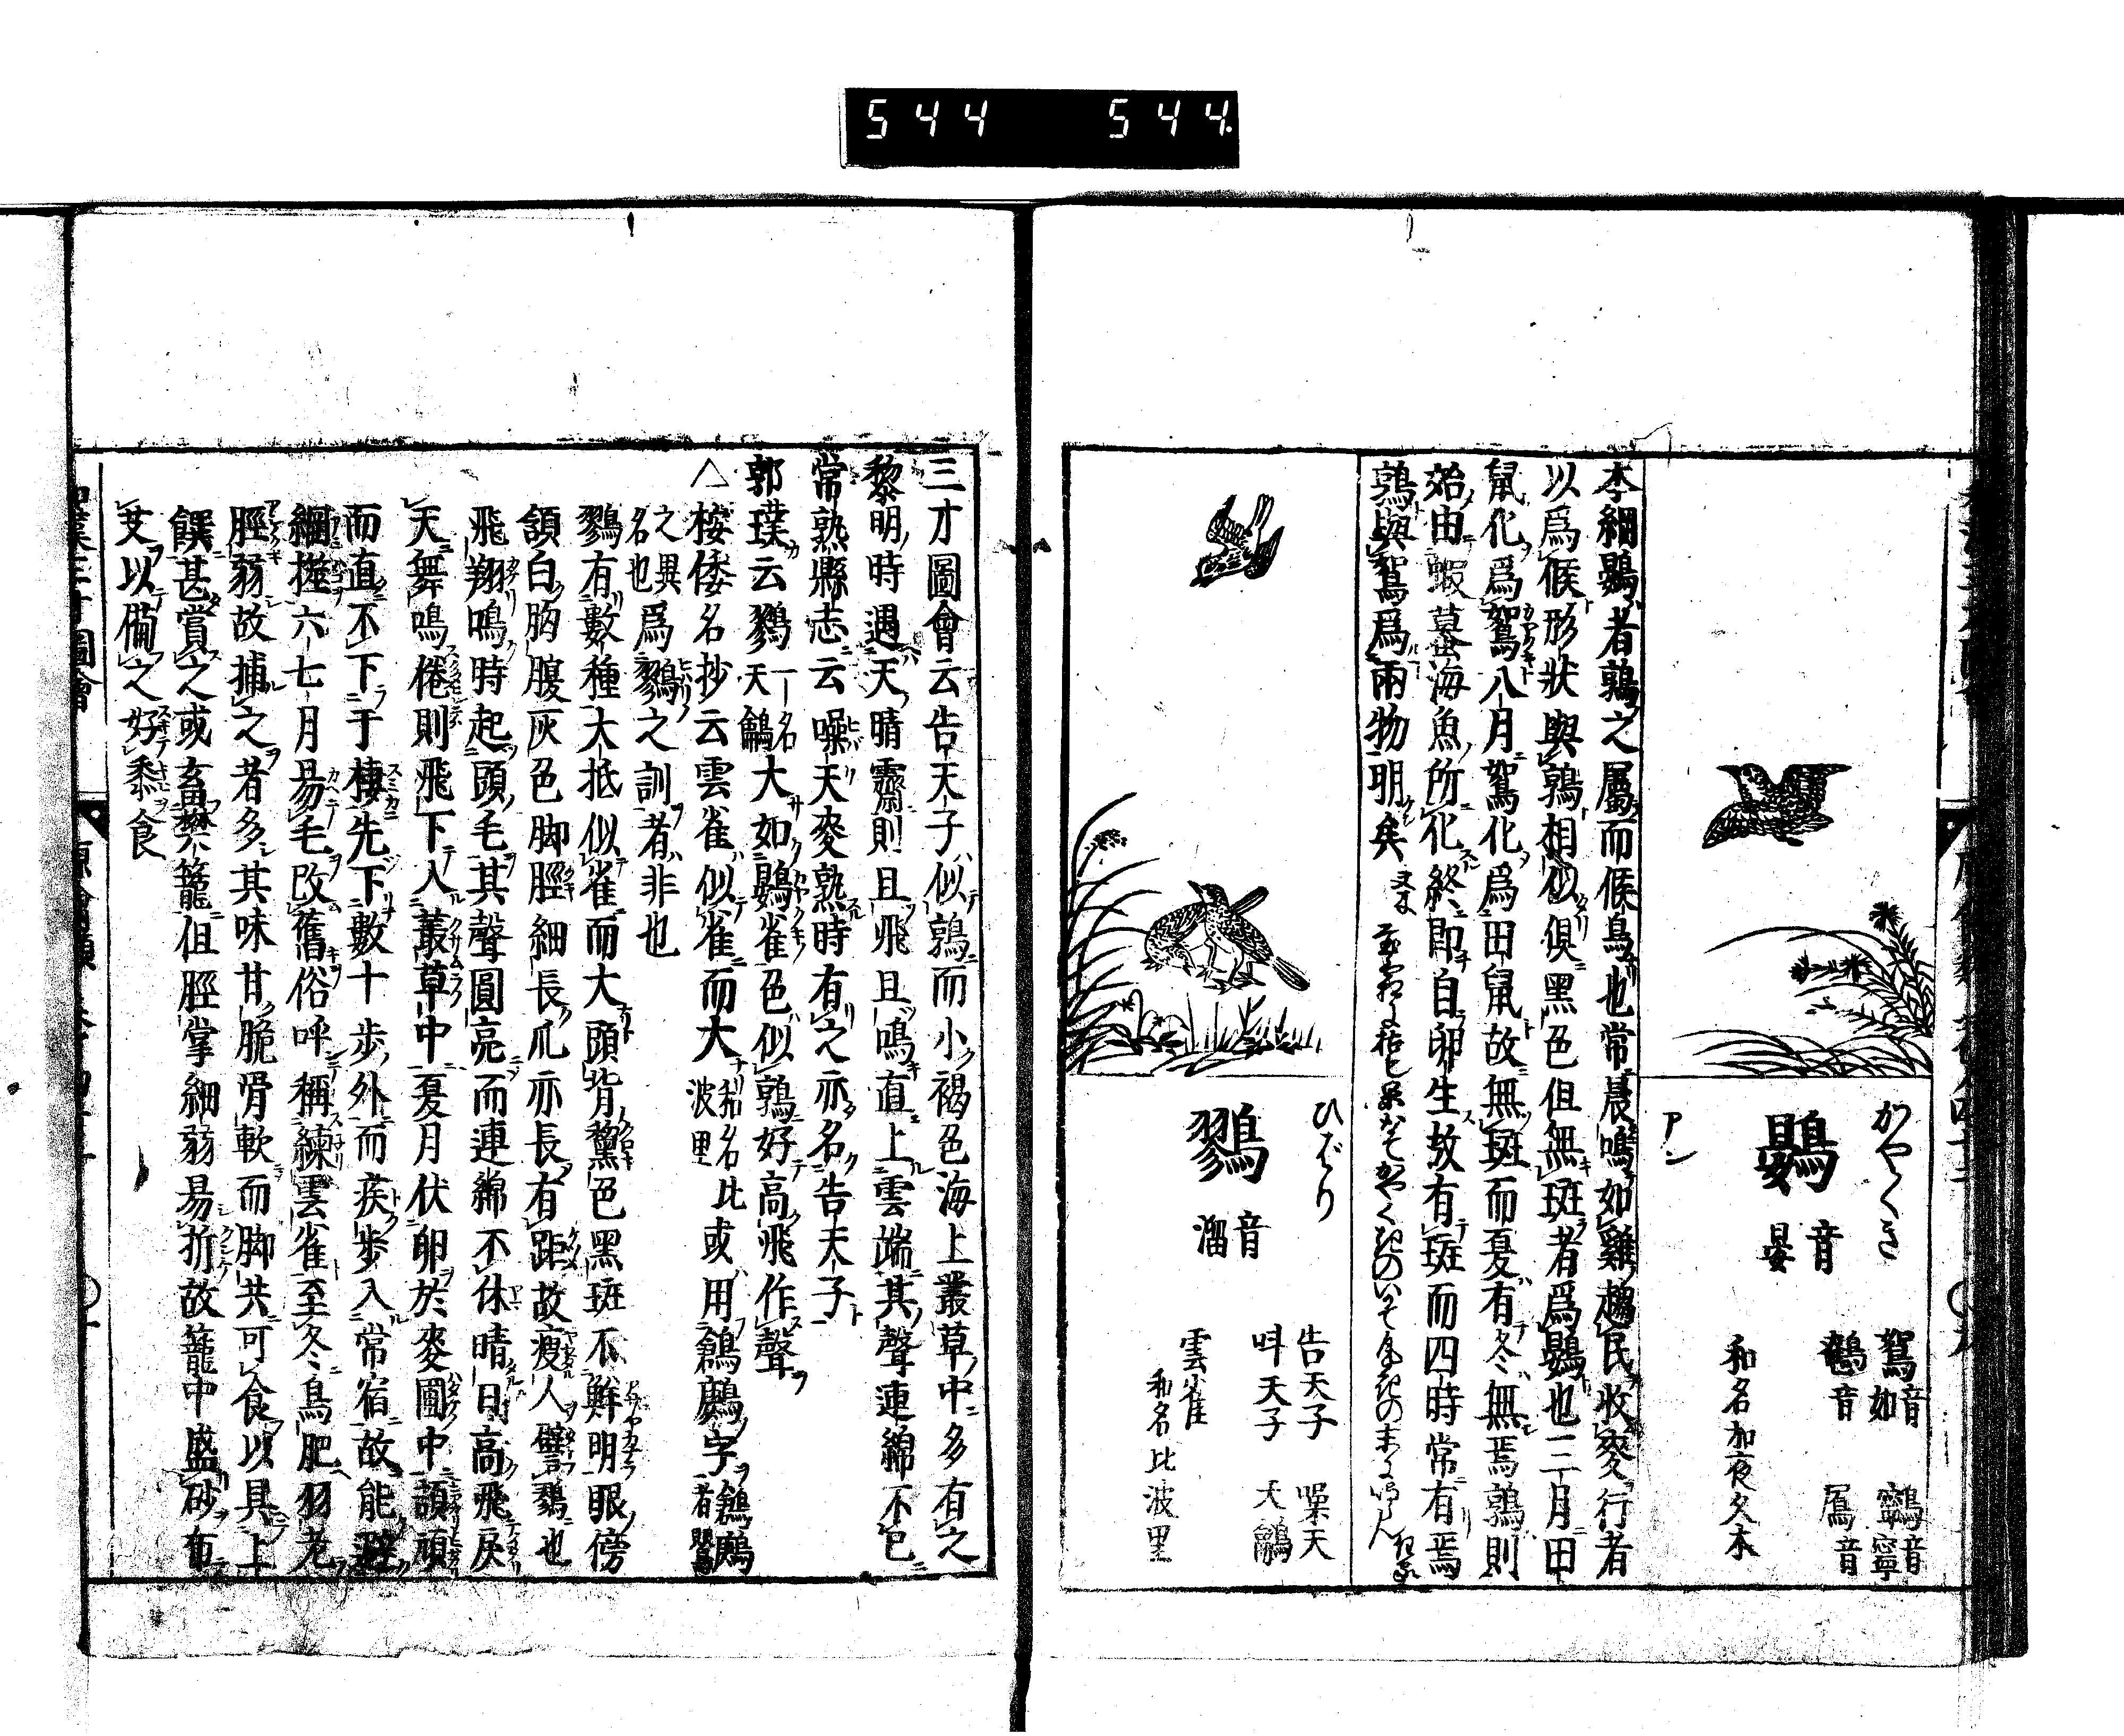 544 544
かやくき
鷃 音晏
アン
鴽 音如
鸋 音寧
鴾 音
鳸 音
和名加夜久木
本綱鷃者鶉之屬而候鳥也常晨鳴如雞趨民收麥行者
以爲候形狀與鶉相似俱黑色但無斑者爲鷃也三月田
鼠化爲鴽八月鴽化爲田鼠故無斑而夏有冬無焉鶉則
始由蝦蟇海魚所化終卽自卵生故有斑而四時常有焉
鶉與鴽爲兩物明矣
ひばり
鷚 音溜
告天子 噪天
叫天子 天鸙
雲雀
和名比波里
三才圖會云告天子似鶉而小褐色海上叢草中多有之
黎明時遇天晴霽則且飛且鳴直上雲端其聲連綿不已
常熟縣志云噪天麥熟時有之亦名告天子
郭璞云鷚一名天鸙大如鷃雀色似鶉好高飛作聲
△桉倭名抄云雲雀似雀而大和名比波里或用鶬鶊字鶬鶊者鸎
之異名也爲鷚之訓者非也
鷚有數種大抵似雀而大頭背黧色黑斑不鮮明眼傍
頷白胸腹灰色脚脛細長爪亦長有距故瘦人譬鷚也
飛翔鳴時起頭毛其聲圓亮而連綿不休晴日高飛戾
天舞鳴倦則飛下入叢草中夏月伏卵於麥圃中頡頏
而直不下于棲先下數十步外而疾步入常宿故能避
網擌六七月昜毛改舊俗呼稱練雲雀至冬鳥肥羽老
脛弱故捕之者多其味甘脆骨軟而脚共可食以具上
饌甚賞之或畜樊籠但脛掌細弱易折故籠中盛砂布
艾以備之好黍食